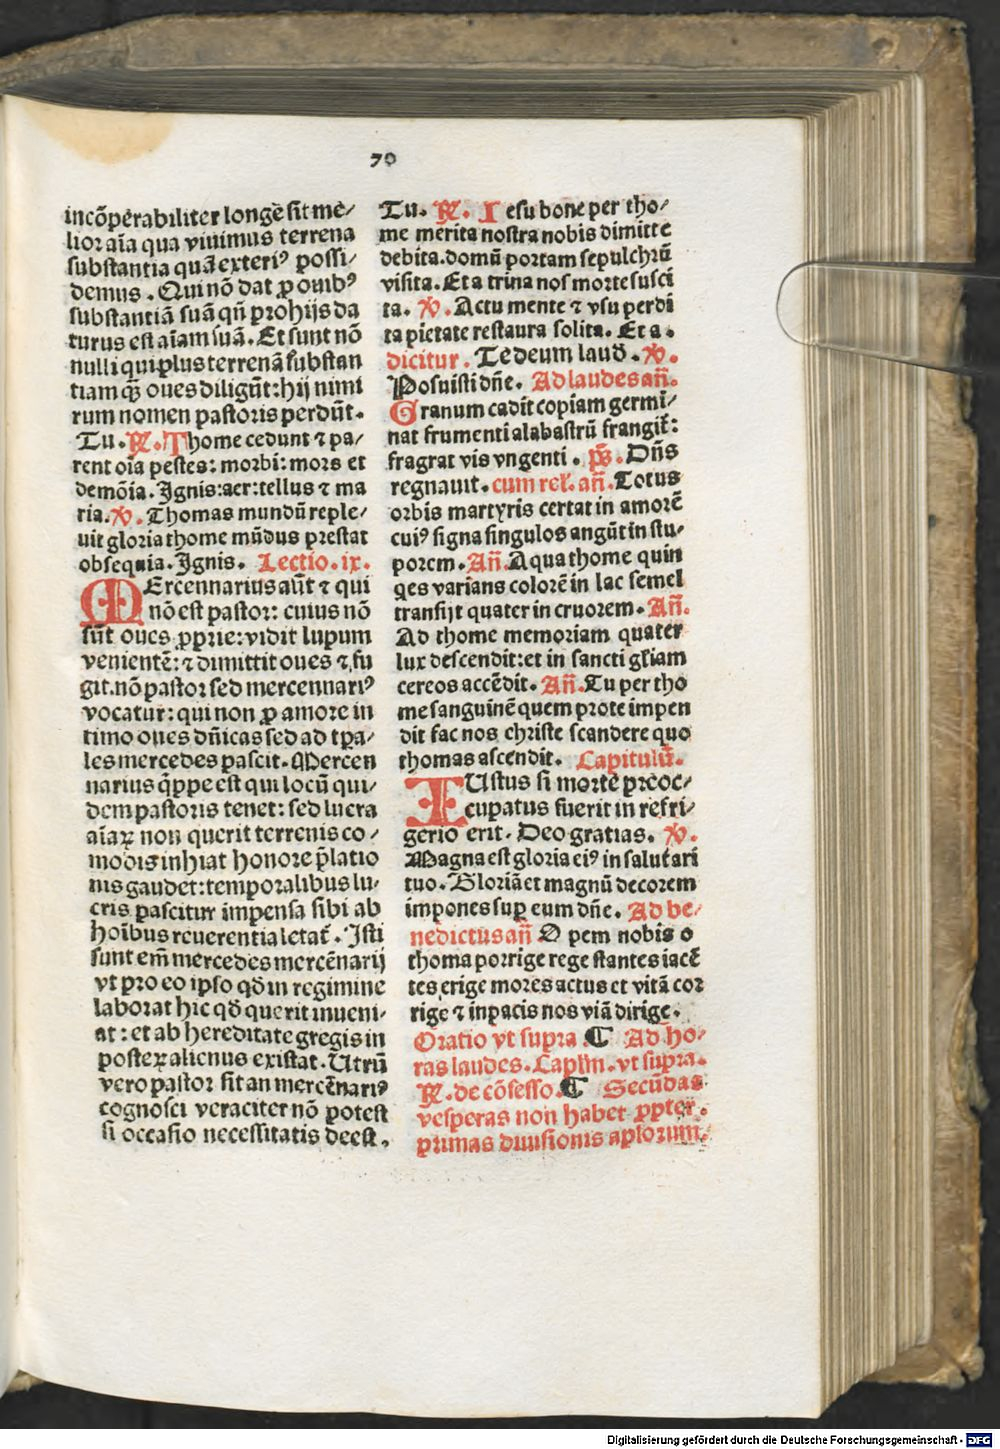 70
incōꝑabiliter longe sit me/
lior aīa qua viuimus terrena
substantia quā exteriꝰ possi/
demus. Qui nō dat ꝓ ouibꝰ
substantiā suā qn̄ pro hijs da
turus est aīam suā. Et sunt nō
nulli qui plus terrenā substan
tiam qȝ̄ oues diligūt: hij nimi
rum nomen pastoris perdūt.
Tu. ℟. Thome cedunt ⁊ pa/
rent oīa pestes: morbi: mors et
demōia. Ignis: aer: tellus ⁊ ma
ria. ℣. Thomas mundū reple/
uit gloria thome mūdus prestat
obsequia. Ignis. Lectio. ix.
MErcennarius aūt ⁊ qui
nō est pastor: cuius nō
sūt oues ꝓprie: vidit lupum
venientē: ⁊ dimittit oues ⁊ fu
git. nō pastor sed mercennariꝰ
vocatur: qui non ꝓ amore in
timo oues dn̄icas sed ad tꝑa/
les mercedes pascit. Mercen
narius q̄ppe est qui locū qui/
dem pastoris tenet: sed lucra
aīaꝝ non querit terrenis co/
modis inhiat honore p̄latio
nis gaudet: temporalibus lu/
cris pascitur impensa sibi ab
hoībus reuerentia letat̄. Isti
sunt em̄ mercedes mercēnarij
vt pro eo ipso qd̄ in regimine
laborat hic qd̄ querit inueni/
at: et ab hereditate gregis in
posteꝝ alienus existat. Utrū
vero pastor sit an mercēnariꝰ
cognosci veraciter nō potest
si occasio necessitatis deest.
Tu. ℟. Iesu bone per tho/
me merita nostra nobis dimitte
debita. domū portam sepulchrū
visita. Et a trina nos morte susci
ta. ℣. Actu mente ⁊ vsu perdi
ta pietate restaura solita. Et a.
dicitur. Te deum laud̄. ℣.
Posuisti dn̄e. Ad laudes an̄.
Granum cadit copiam germi/
nat frumenti alabastrū frangit̄:
fragrat vis vngenti. ps̄. Dn̄s
regnauit. cum rel̄. an̄. Totus
orbis martyris certat in amorē
cuiꝰ signa singulos angūt in stu/
porem. An̄. Aqua thome quin
qes varians colorē in lac semel
transijt quater in cruorem. An̄.
Ad thome memoriam quater
lux descendit: et in sancti gl̄iam
cereos accēdit. An̄. Tu per tho
me sanguinē quem pro te impen
dit fac nos christe scandere quo
thomas ascendit. Capitulū.
IUstus si morte preoc/
cupatus fuerit in refri/
gerio erit. Deo gratias. ℣.
Magna est gloria eiꝰ in salutari
tuo. Gloriā et magnū decorem
impones suꝑ eum dn̄e. Ad be/
nedictus an̄ O pem nobis o
thoma porrige rege stantes iacē
tes erige mores actus et vitā cor
rige ⁊ in pacis nos viā dirige.
Oratio vt supra. ℂ Ad ho/
ras laudes. Caplm̄. vt supra.
℟. de cōfesso. ℂ Secūdas
vesperas non habet ꝓpter.
primas diuisionis apl̄orum.
Digitalisierung gefördert durch die Deutsche Forschungsgemeinschaft - DFG